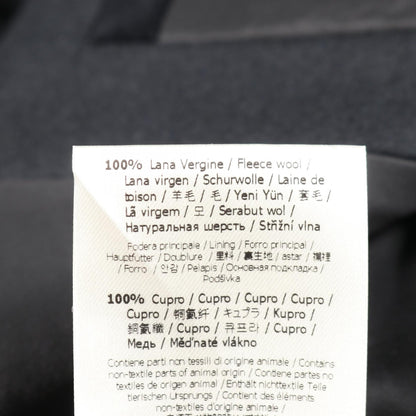 100% Lana Vergine / Fleece wool /
Lana virgen / Schurwolle / Laine de
toison / 羊毛 / 毛 / Yeni Yün / 套毛 /
Lã virgem / 모 / Serabut wol /
Натуральная шерсть / Střižní vlna
Fodera principale / Lining / Forro principal /
Hauptfutter / Doublure / 里料 / 裏生地 / astar / 襯裡
/ Forro / 안감 / Pelapis / Основная подкладка /
Podšívka
100% Cupro / Cupro / Cupro / Cupro /
Cupro / 铜氨纤 / キュプラ / Kupro /
銅氨纖 / Cupro / 큐프라 / Cupro /
Медь / Měďnaté vlákno
Contiene parti non tessili di origine animale / Contains
non-textile parts of animal origin / Contiene partes no
textiles de origen animal / Enthält nichttextile Teile
tierischen Ursprungs / Contient des éléments
non-textiles d'origine animale /